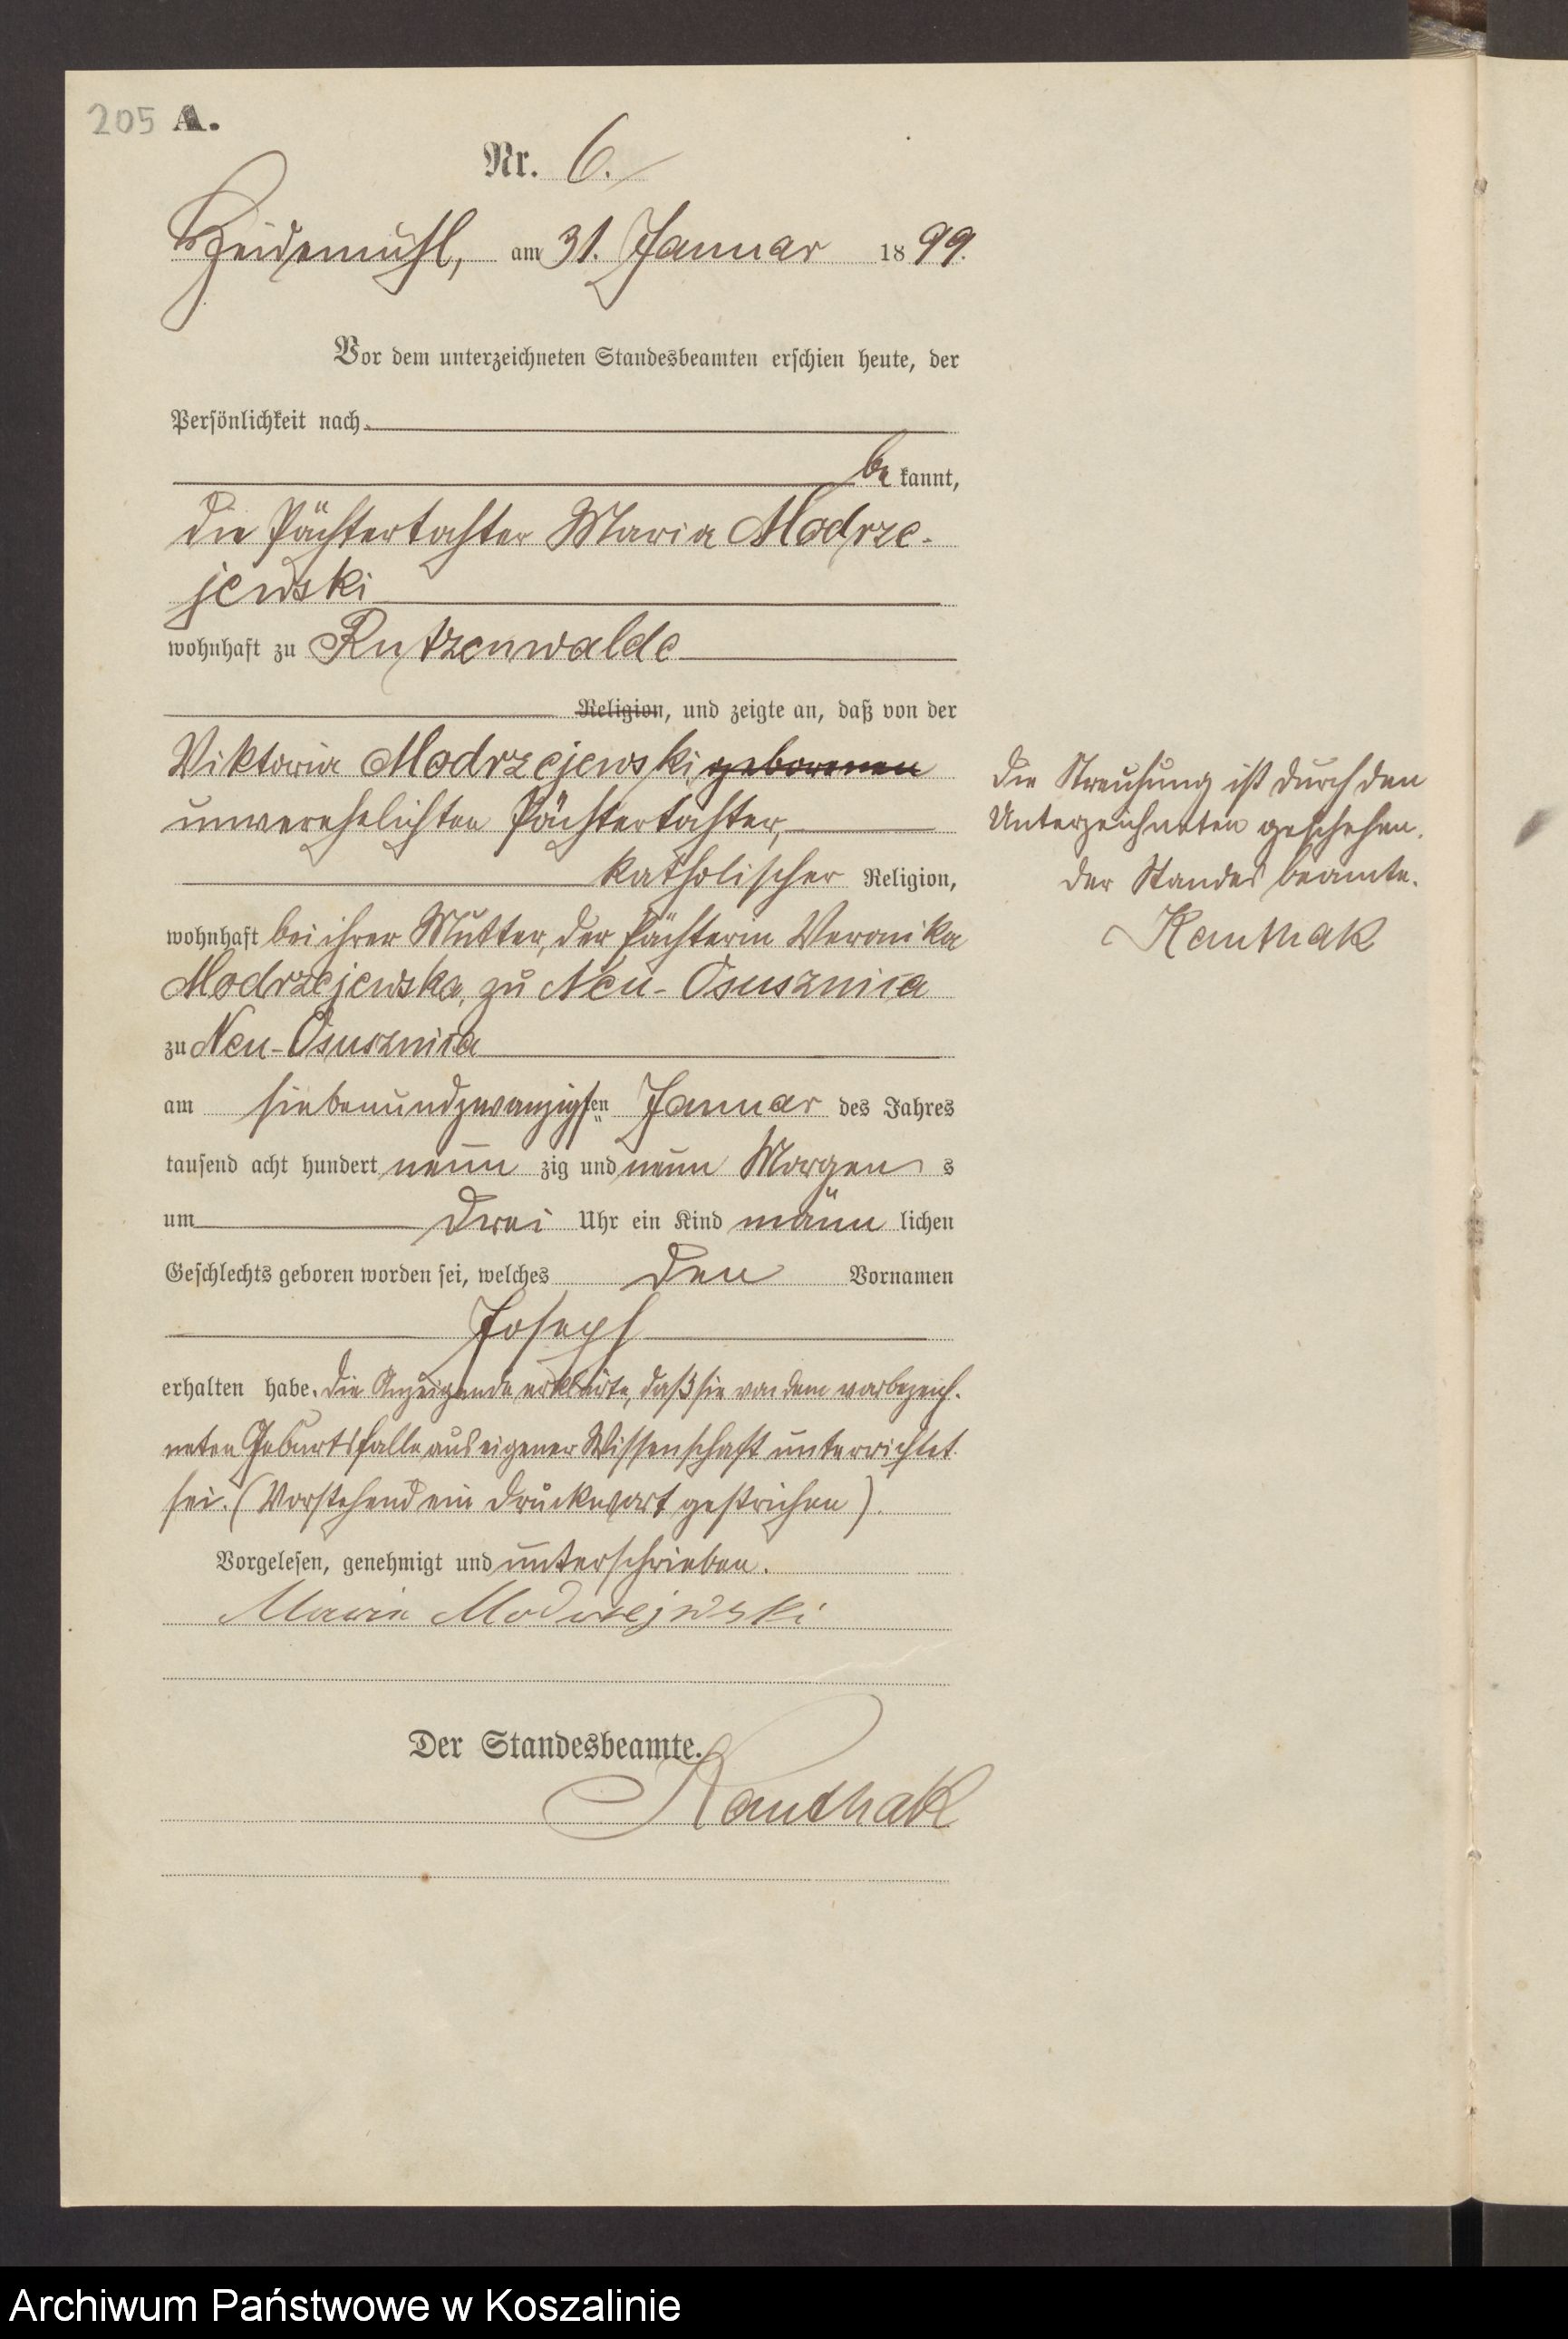 205 A.
Nr. 6.
Heidemühl, am 31. Januar 1899.
Vor dem unterzeichneten Standesbeamten erschien heute, der
Persönlichkeit nach
be kannt,
die Pächtertochter Maria Modrze-
jewski
wohnhaft zu Rutzenwalde
Religion, und zeigte an, daß von der
Viktoria Modrzejewski geborenen
unverehelichten Pächtertochter,
katholischer Religion,
wohnhaft bei ihrer Mutter, der Pächterin Veronika
Modrzejewska, zu Neu-Osusznica
zu Neu-Osusznica
am siebenundzwanzigsten Januar des Jahres
tausend acht hundert neun zig und neun Morgens
um drei Uhr ein Kind männ lichen
Geschlechts geboren worden sei, welches den Vornamen
Joseph
erhalten habe. Die Anzeigende erklärte, daß sie von dem vorbezeich-
neten Geburtsfalle aus eigener Wissenschaft unterrichtet
sei. (Vorstehend ein Druckwort gestrichen).
Vorgelesen, genehmigt und unterschrieben.
Maria Modrzejewski
Der Standesbeamte.
Kauthak
Die Streichung ist durch den
Unterzeichneten geschehen.
Der Standesbeamte.
Kauthak
Archiwum Państwowe w Koszalinie